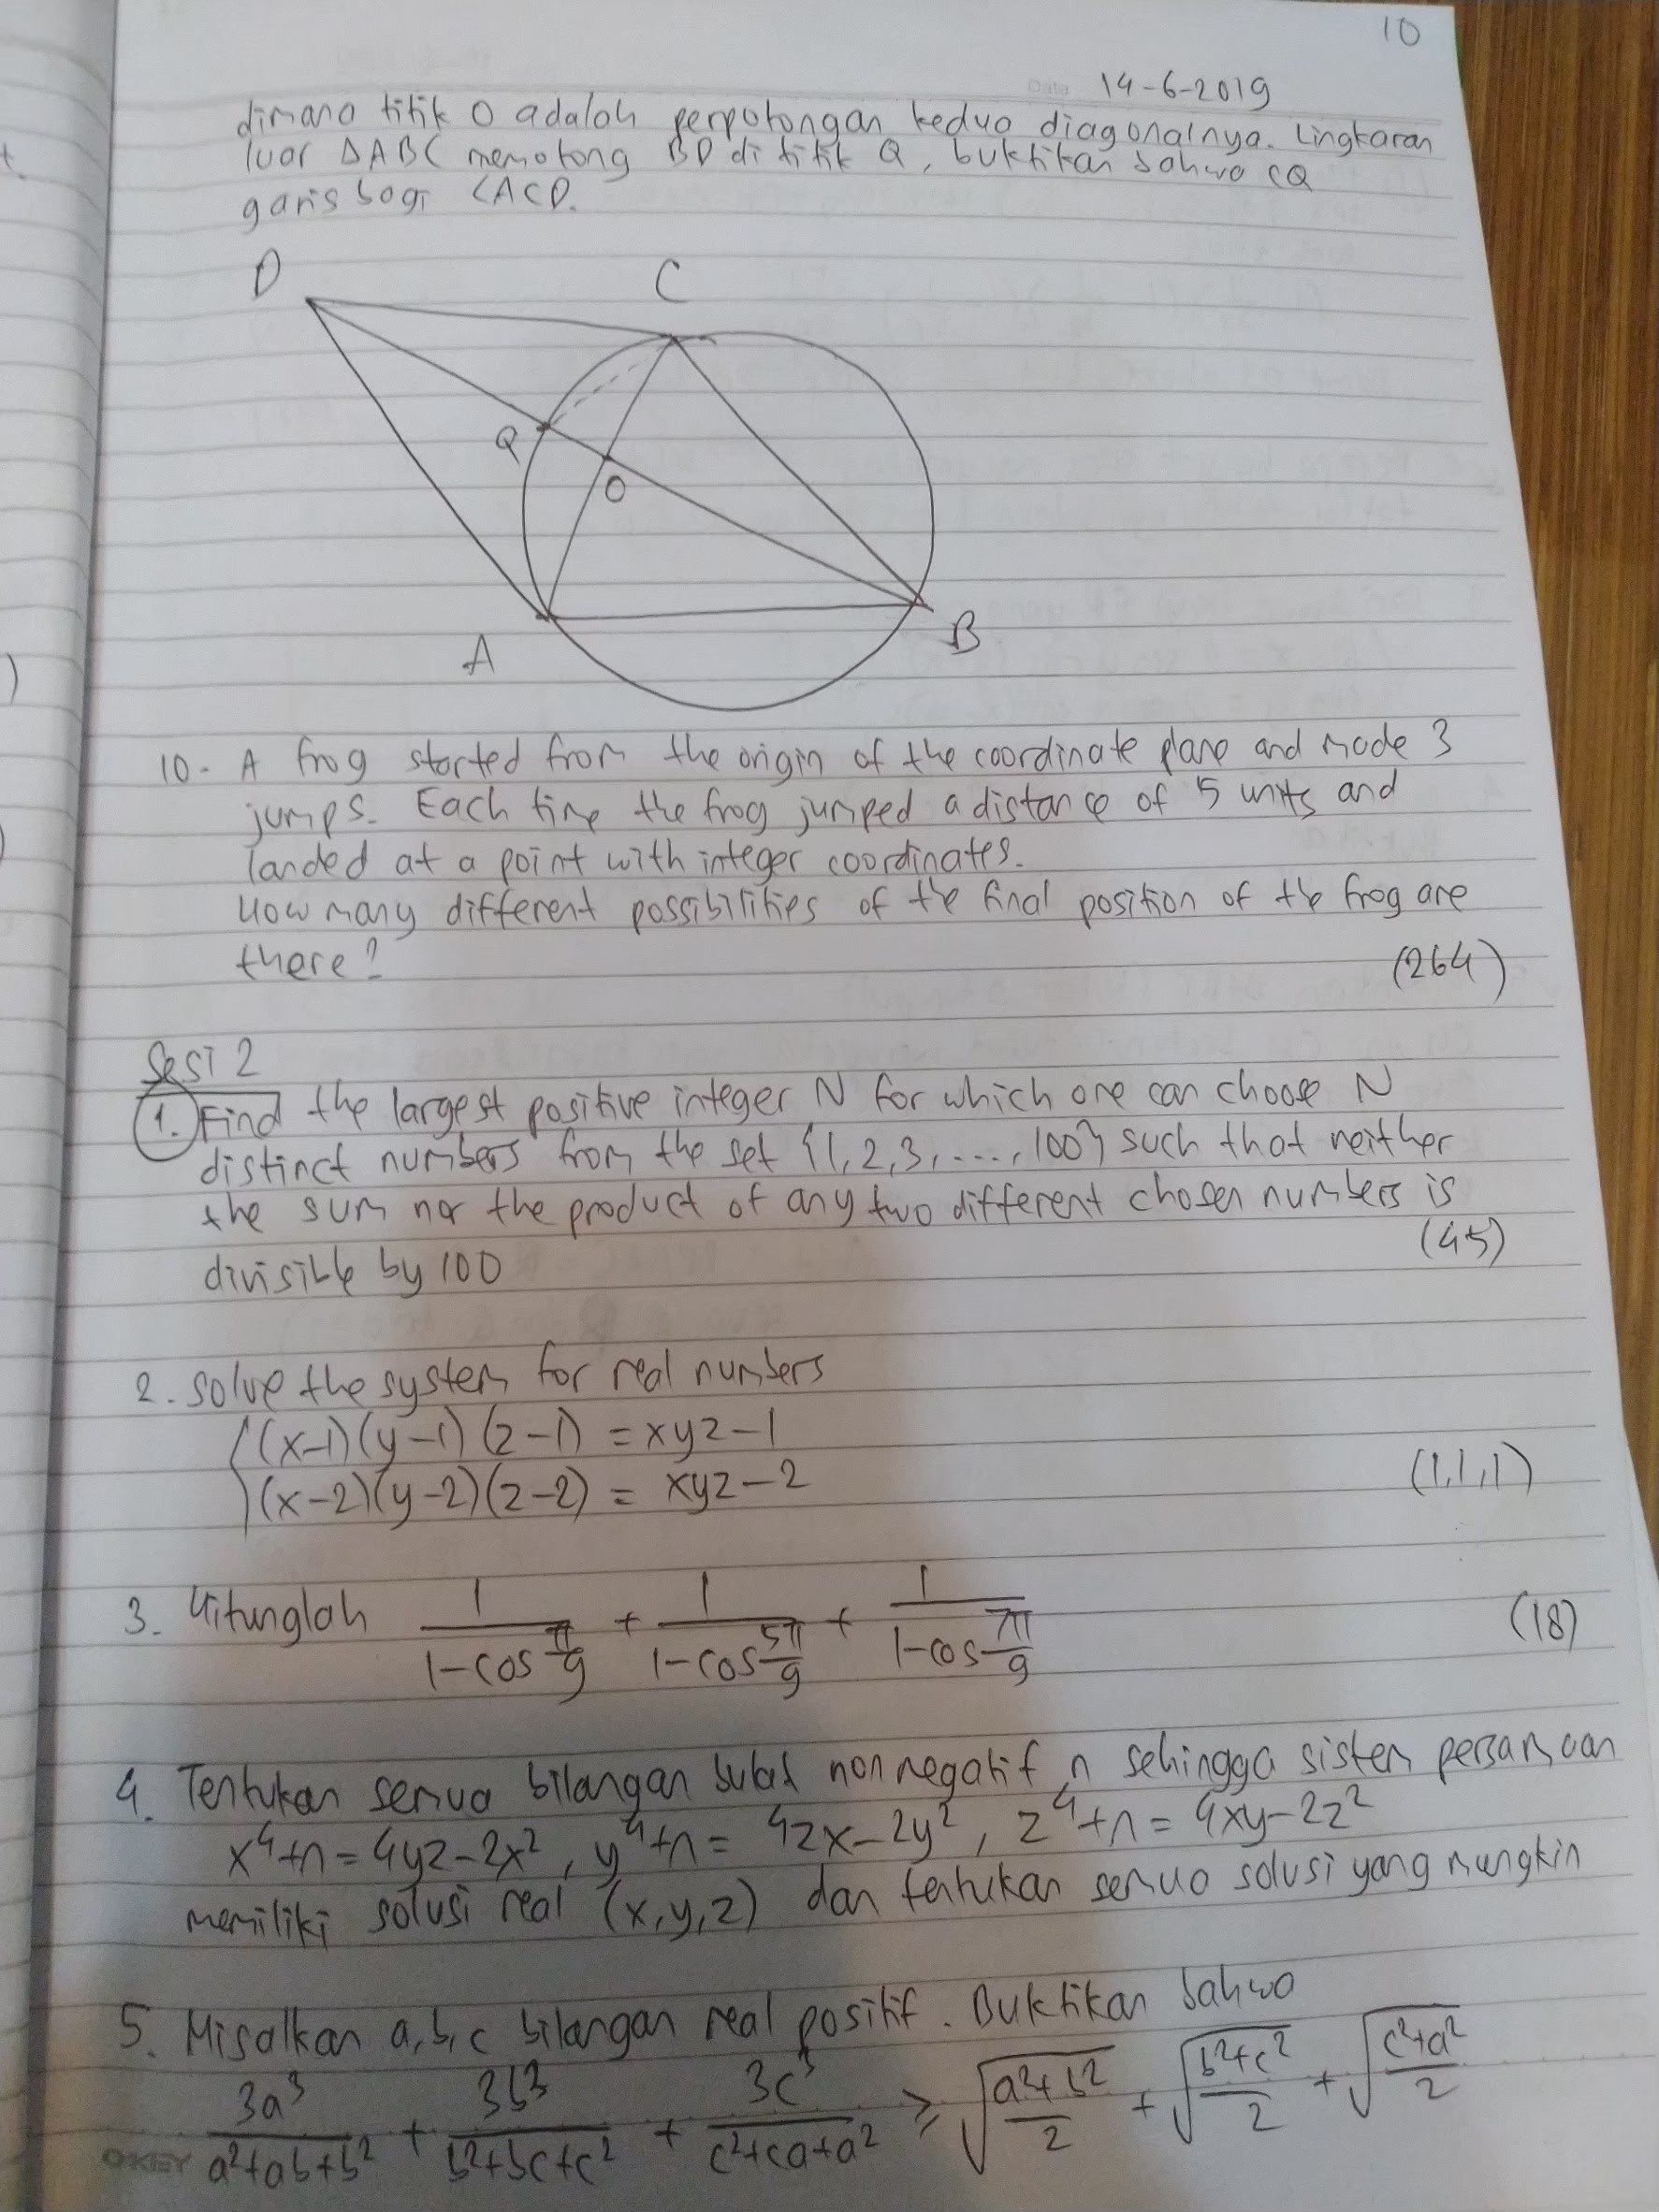 10
Date 14-6-2019
dimana titik O adalah perpotongan kedua diagonalnya. Lingkaran
luar ΔABC memotong BD di titik Q, buktikan bahwa CQ
garis bagi ∠ACD.
D
C
Q
O
A
B
10. A frog started from the origin of the coordinate plane and made 3
jumps. Each time the frog jumped a distance of 5 units and
landed at a point with integer coordinates.
How many different possibilities of the final position of the frog are
there?
(264)
Sesi 2
1. Find the largest positive integer N for which one can choose N
distinct numbers from the set {1, 2, 3, ...., 100} such that neither
the sum nor the product of any two different chosen numbers is
divisible by 100
(45)
2. Solve the system for real numbers
(x-1)(y-1)(z-1) = xyz-1
(x-2)(y-2)(z-2) = xyz-2
(1,1,1)
3. Hitunglah 1/(1-cos π/9) + 1/(1-cos 5π/9) + 1/(1-cos 7π/9)
(18)
4. Tentukan semua bilangan bulat nonnegatif n sehingga sistem persamaan
x⁴+n = 4yz-2x², y⁴+n = 4zx-2y², z⁴+n = 4xy-2z²
memiliki solusi real (x,y,z) dan tentukan semua solusi yang mungkin
5. Misalkan a,b,c bilangan real positif. Buktikan bahwa
3a³/(a²+ab+b²) + 3b³/(b²+bc+c²) + 3c³/(c²+ca+a²) ≥ √((a²+b²)/2) + √((b²+c²)/2) + √((c²+a²)/2)
OKEY